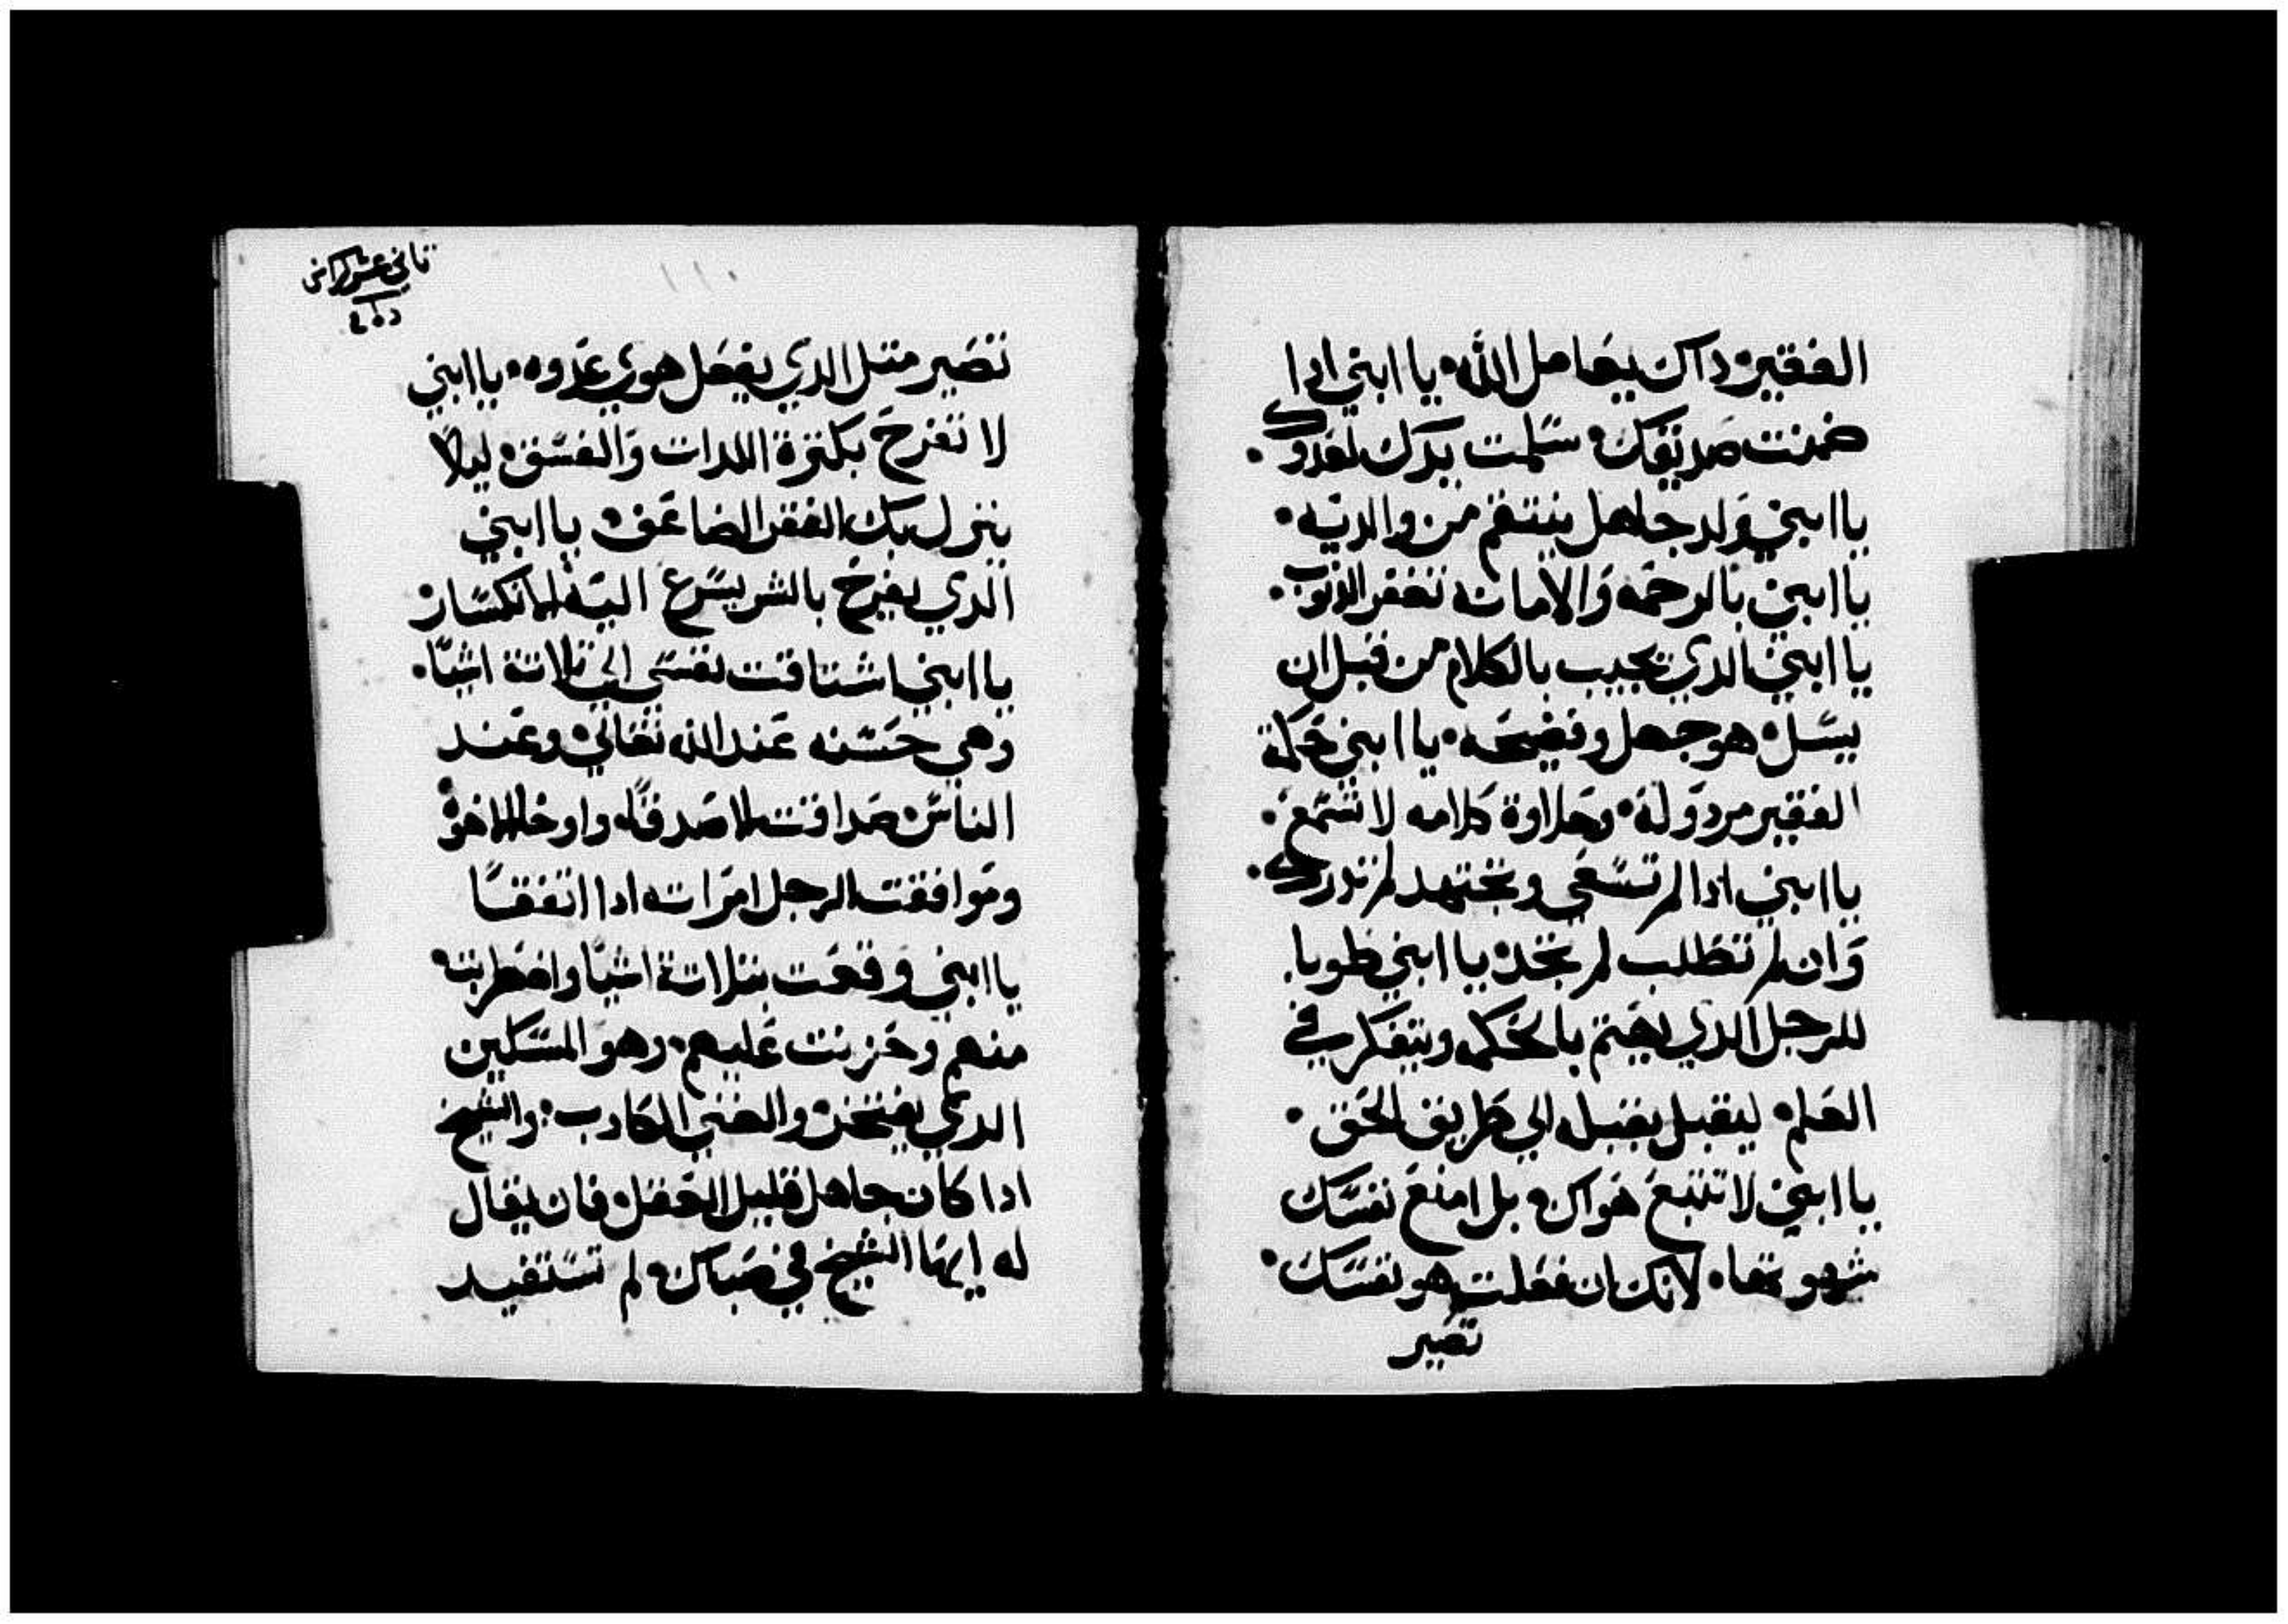 الفقير، داك يعامل الله، يا ابني ادا
ضمنت صديقك، سلمت يدك لعدوك.
يا ابني ولد جاهل ينتقم من والديه.
يا ابني بالرحمه والامانه تغفر الذنوب.
يا ابني الدي يجيب بالكلام من قبل ان
يسل، هو جهل وفضيحه، يا ابني حكمة
الفقير مردوله، وحلاوة كلامه لا تسمع.
يا ابني ادا لم تسعي وتجتهد لم تدرك.
وان لم تطلب لم تجد، يا ابني طوبا
للرجل الدي يهتم بالحكمه ويتفكر في
العلم، ليقبل بفضله الي طريق الحق.
يا ابني لا تتبع هواك، بل امنع نفسك
شهوتها، لانك ان فعلت هو نفسك.
تصير
تاني عشر كراس
تصير متل الدي يفعل هوي عدوه، يا ابني
لا تفرح بكترة اللدات والفسق، ليلا
ينزل بك الفقر المضاعف، يا ابني
الدي يفرح بالشر يسرع اليه الانكسار،
يا ابني اشتاقت نفسي الي تلاتة اشيا.
وهي حسنه عند الله تعالي، وعند
الناس، صداقت الاصدقا، واوخا الاخوه
وموافقت الرجل امراته ادا اتفقا
يا ابني وقعت بتلاتة اشيا واضطربت،
منهم وحزنت عليهم، وهو المسكين
الدي يفتخر، والغني الكادب، والشيخ
ادا كان جاهل قليل العقل، فان يقال
له ايها الشيخ في صباك، لم تستفيد